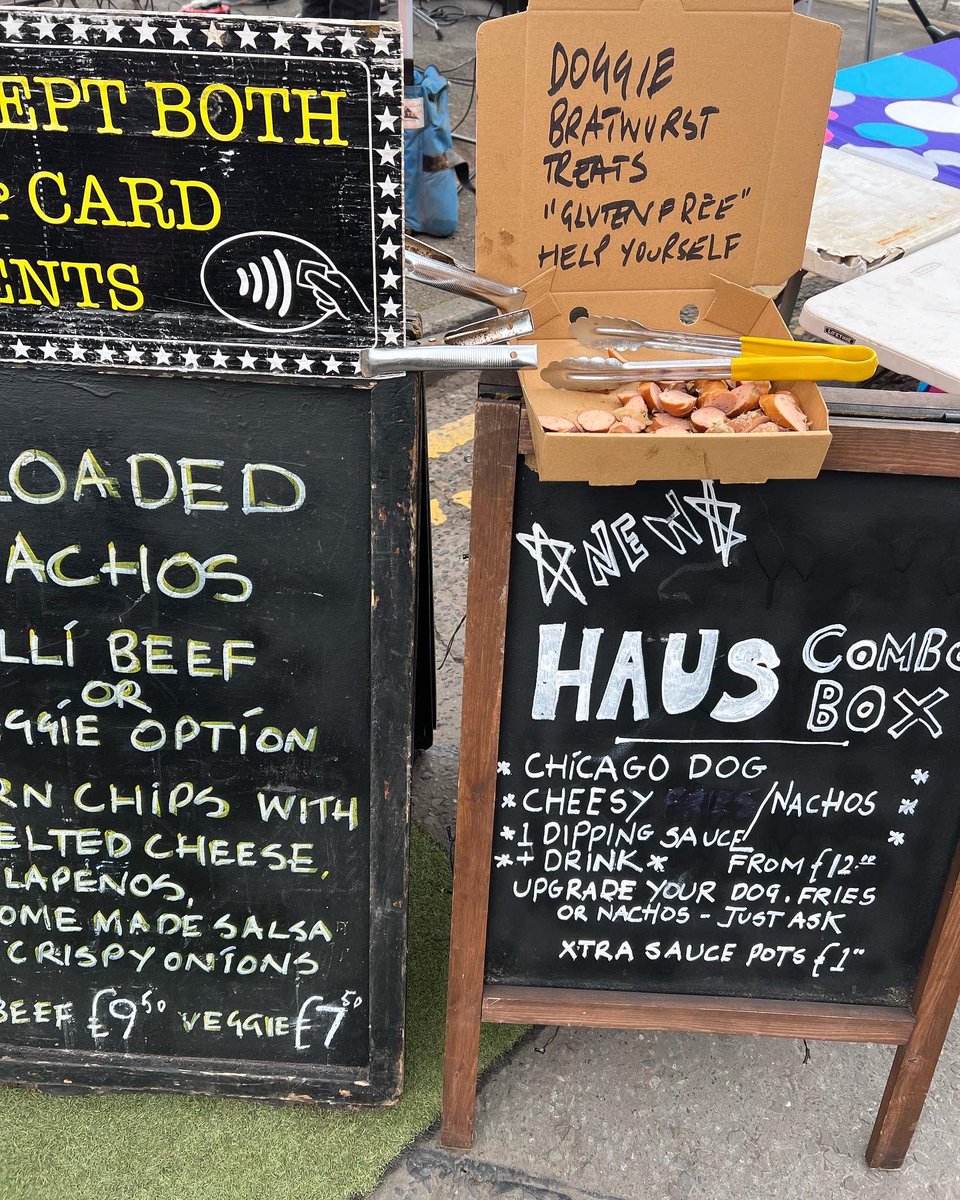 EPT BOTH
& CARD
ENTS
LOADED
NACHOS
LLI BEEF
OR
EGGIE OPTION
RN CHIPS WITH
ELTED CHEESE,
LAPENOS,
OME MADE SALSA
CRISPY ONIONS
BEEF £9.50 VEGGIE £7.50
DOGGIE
BRATWURST
TREATS
"GLUTEN FREE"
HELP YOURSELF
NEW
HAUS COMBO
BOX
* CHICAGO DOG *
* CHEESY FRIES/NACHOS *
* 1 DIPPING SAUCE *
* + DRINK * FROM £12.00
UPGRADE YOUR DOG, FRIES
OR NACHOS - JUST ASK
XTRA SAUCE POTS £1"